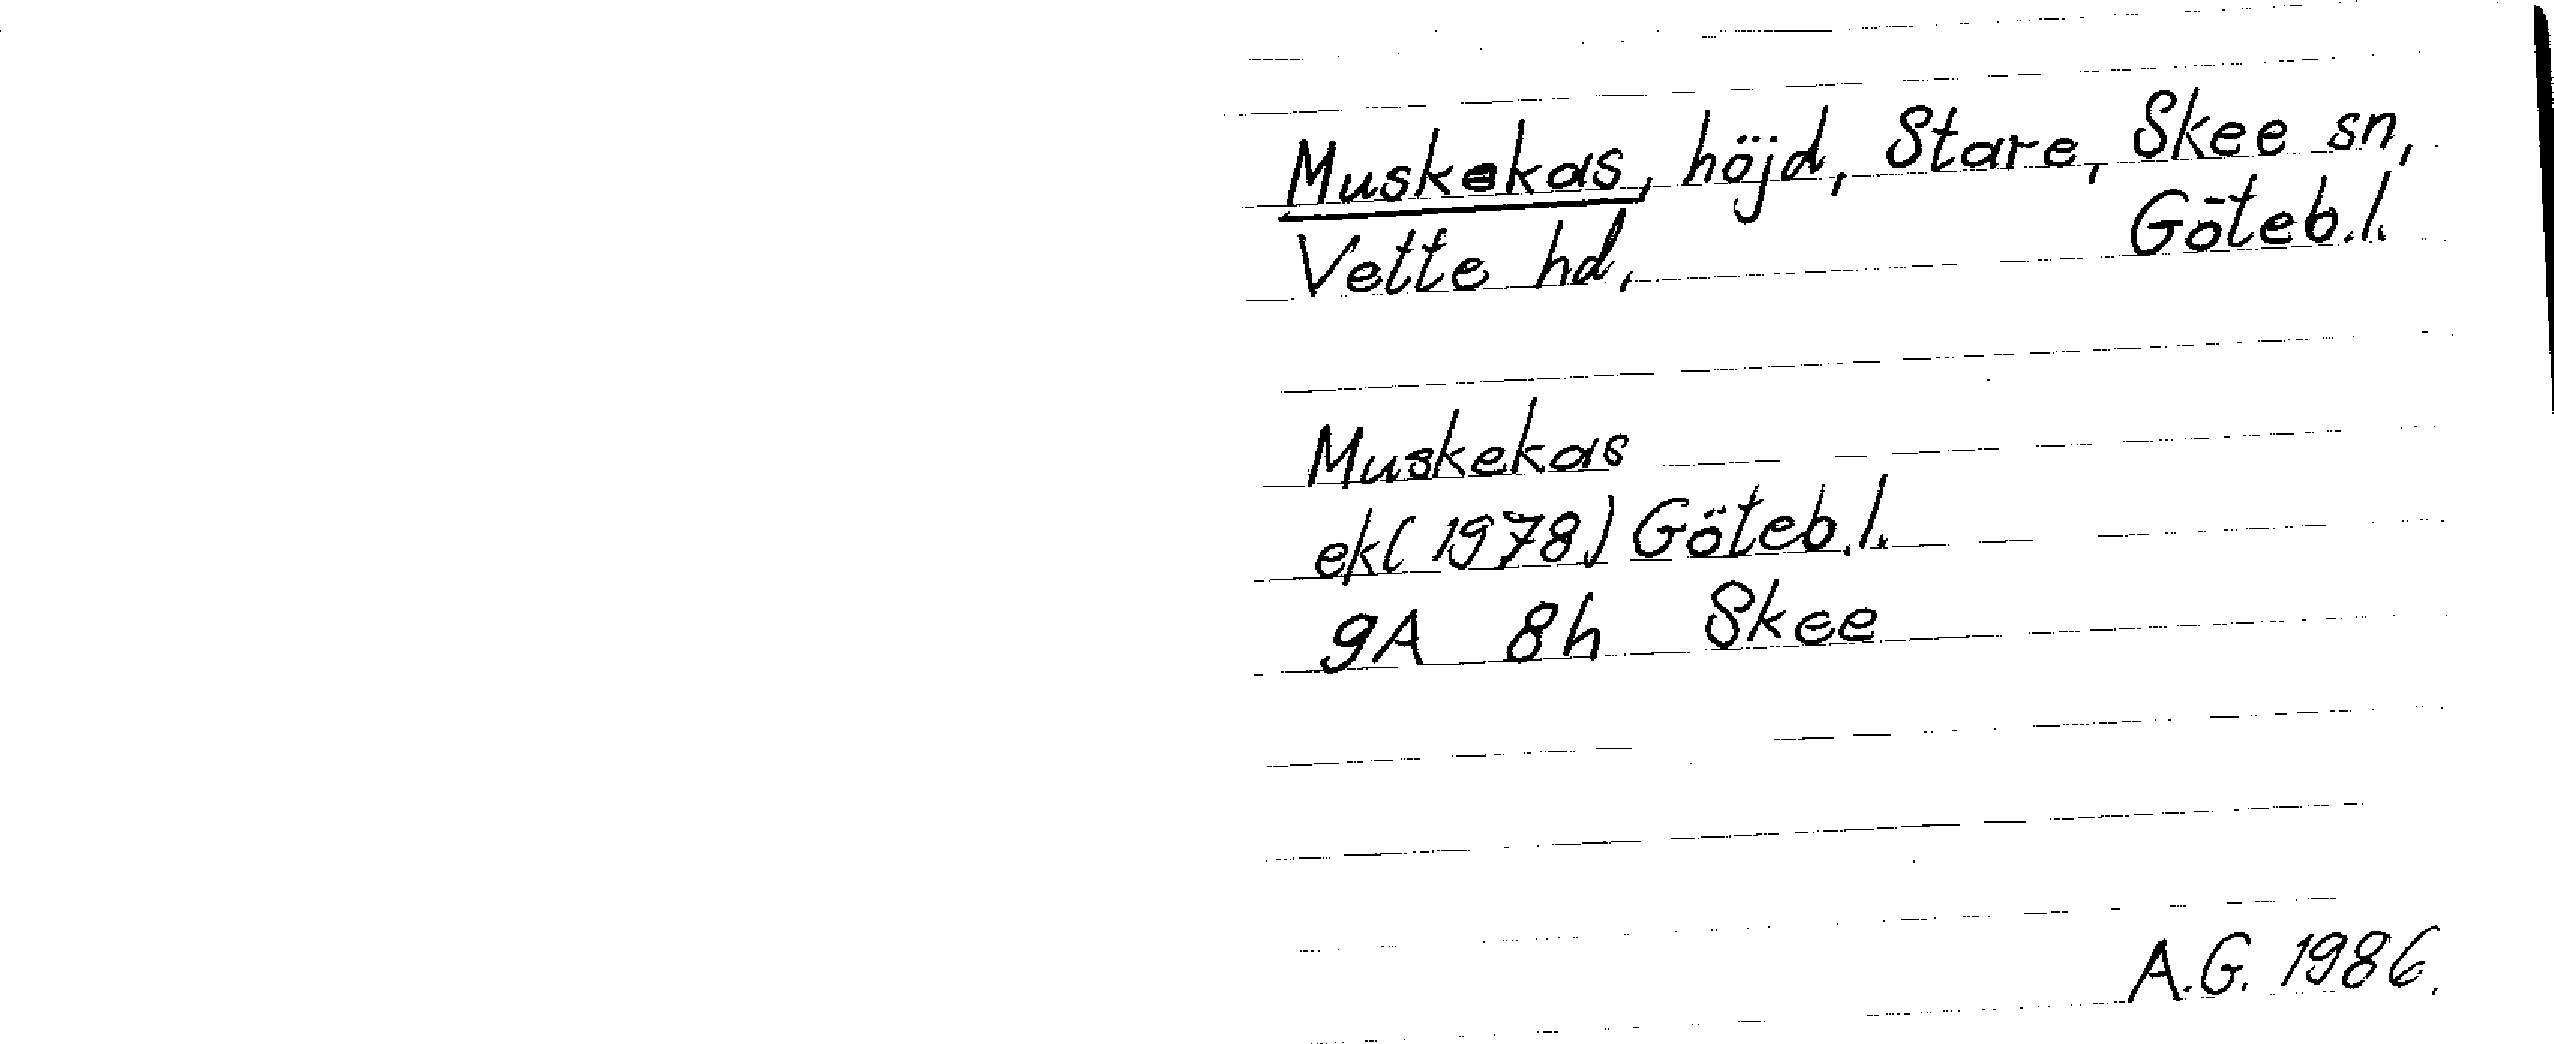 Muskekas, höjd, Stare, Skee sn,
Vette hd, Göteb.l.
Muskekas
ek(1978) Göteb.l.
9A 8h Skee
A.G. 1986.